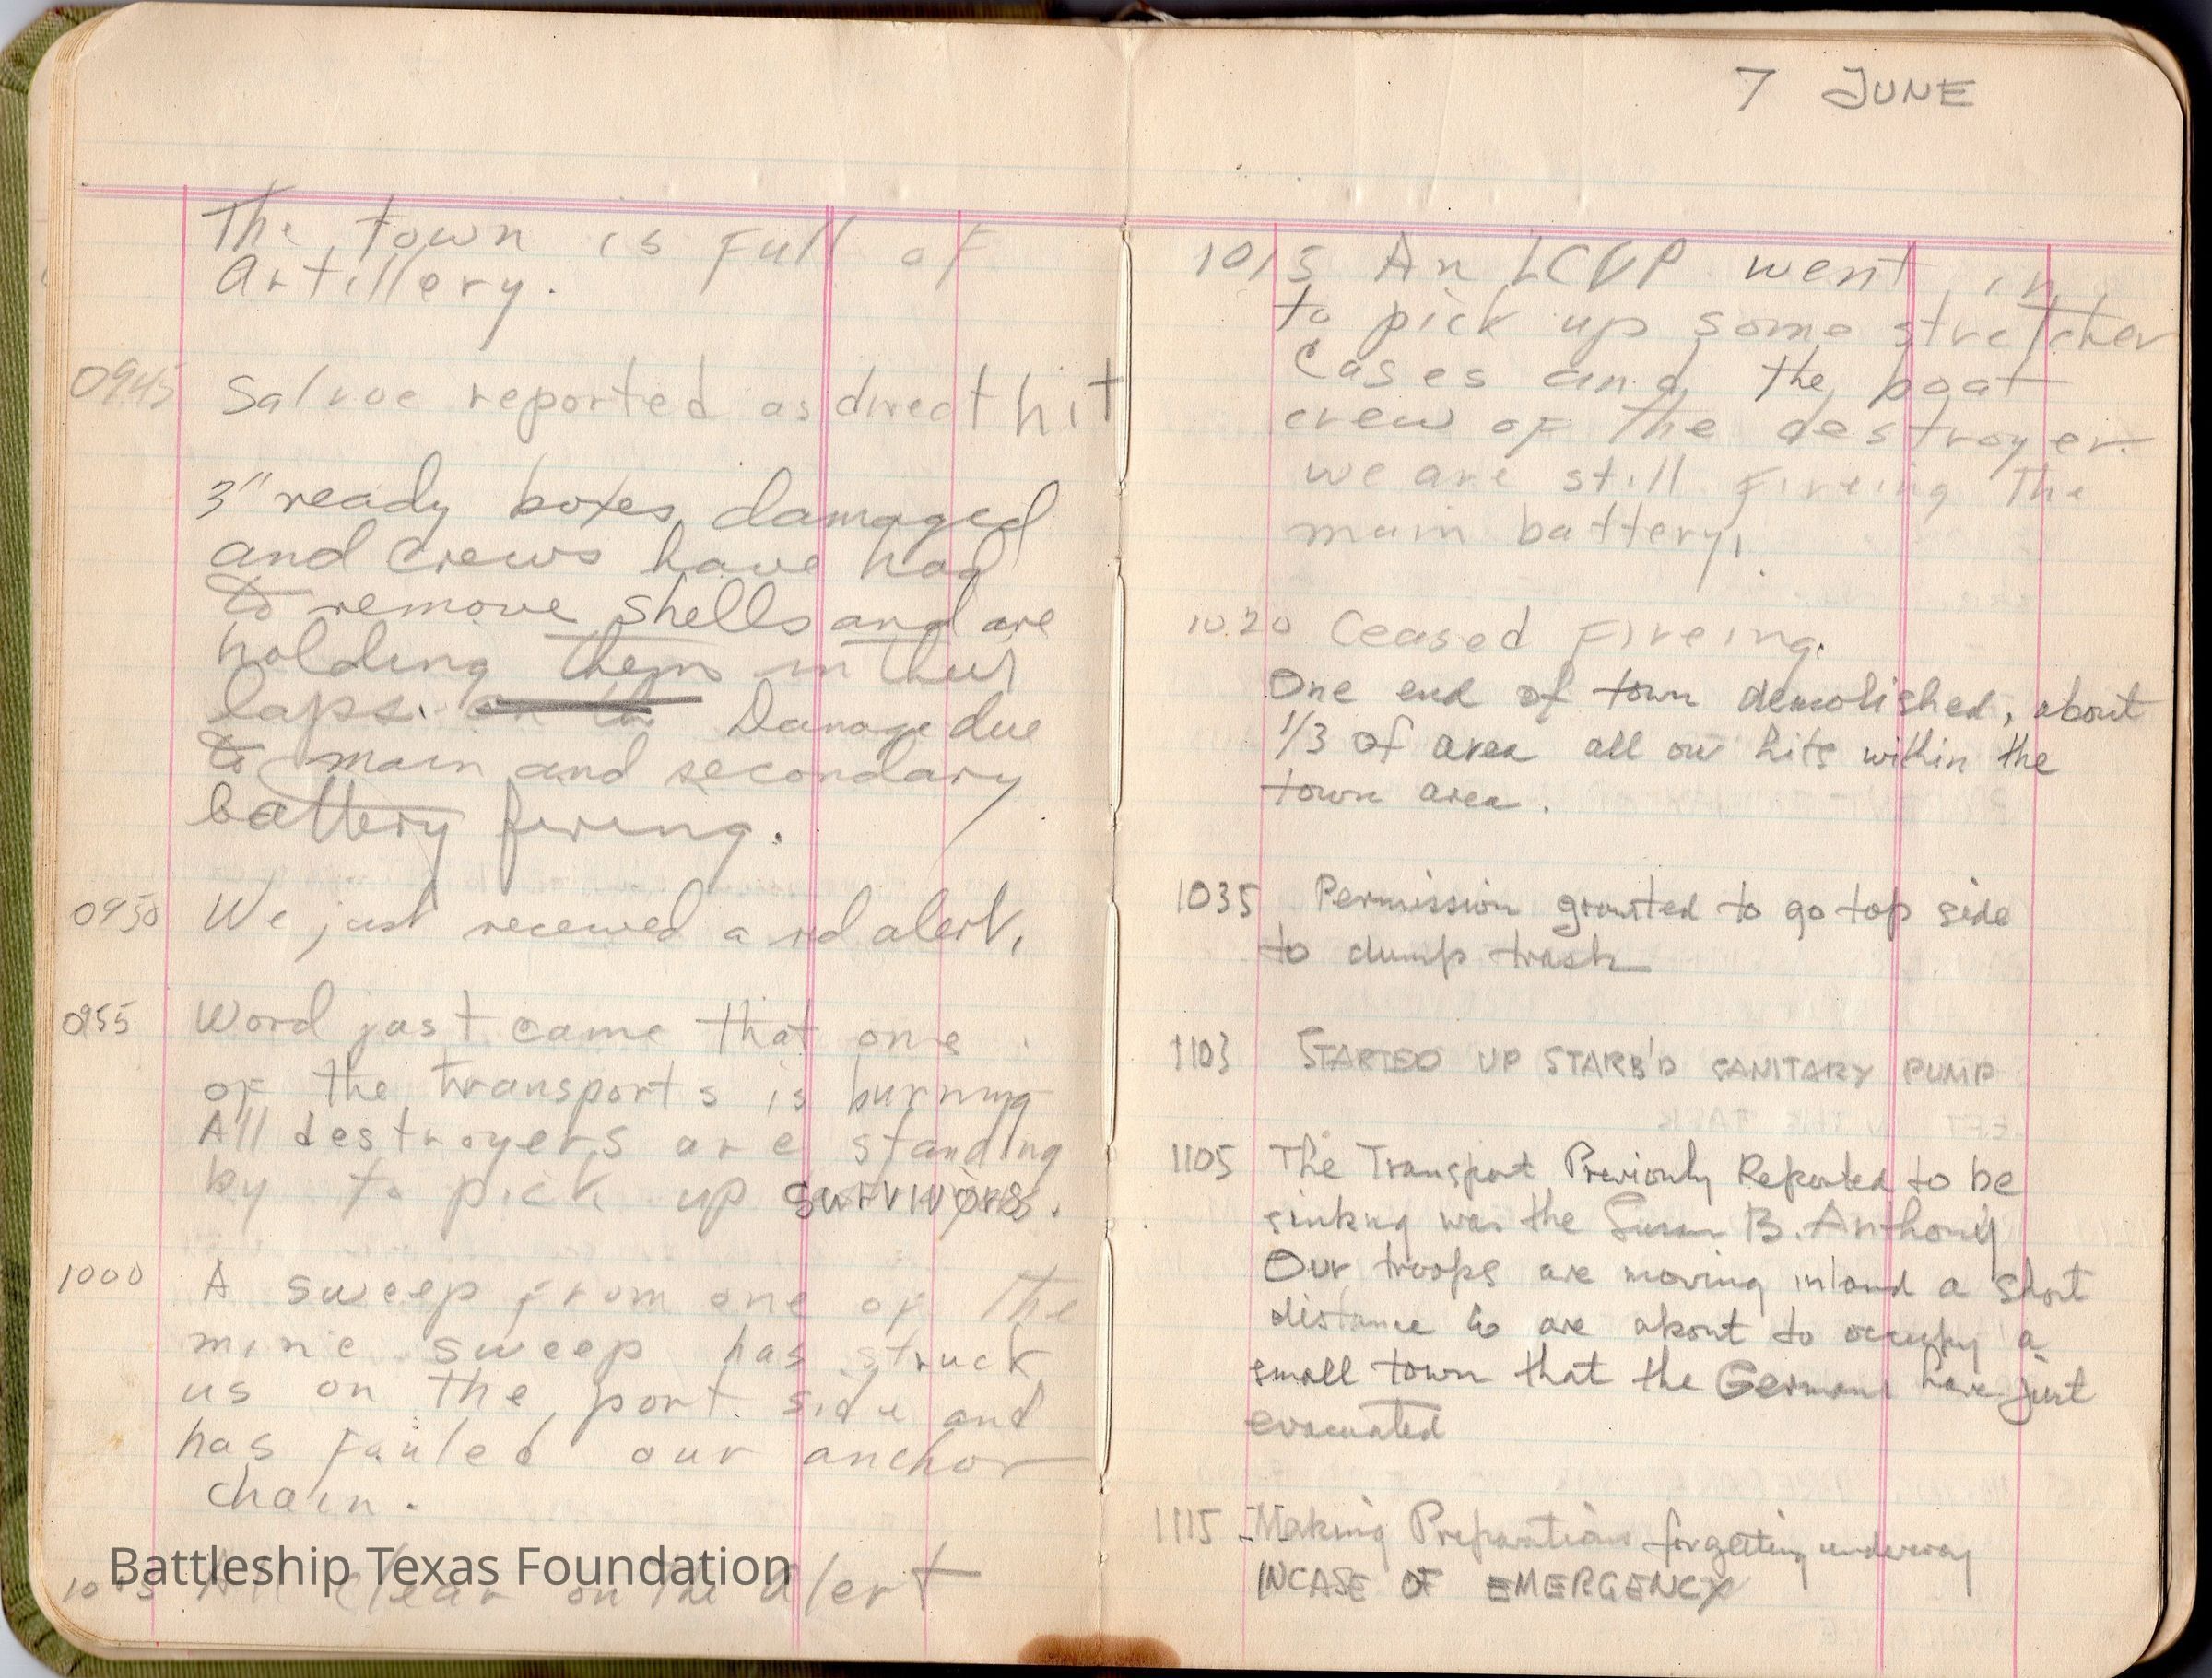 The town is full of
Artillery.
0945 Salvoe reported as direct hit
3" ready boxes damaged
and crews have had
to remove shells and are
holding them in their
laps. Damage due
to main and secondary
battery fireing.
0950 We just received a red alert.
0955 Word just came that one
of the transports is burning
All destroyers are standing
by to pick up survivors.
1000 A sweep from one of the
mine sweep has struck
us on the port side and
has fauled our anchor
chain.
Battleship Texas Foundation
All clear on the alert
7 JUNE
1015 An LCVP went in
to pick up some stretcher
cases and the boat
crew of the destroyer.
we are still fireing the
main battery,
1020 Ceased Fireing.
One end of town demolished, about
1/3 of area all our hits within the
town area.
1035 Permission granted to go top side
to dump trash
1103 STARTED UP STARB'D SANITARY PUMP
1105 The Transport Previously Reported to be
sinking was the Susan B. Anthony
Our troops are moving inland a short
distance & are about to occupy a
small town that the Germans have just
evacuated
1115 Making Preparations for getting underway
INCASE OF EMERGENCY